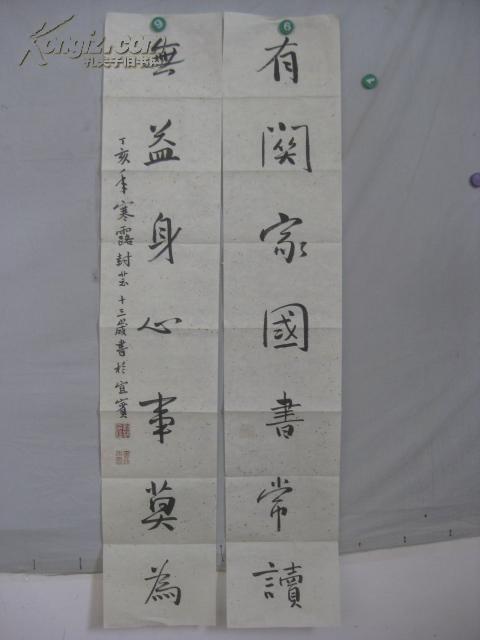 有關家國書常讀
無益身心事莫為
丁亥年寒露封芸十三歲書於宜賓
Kongfz.com
孔夫子旧书网
6
6